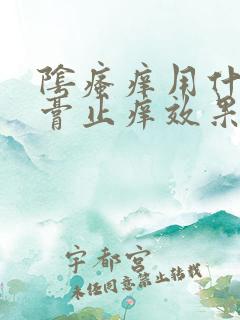 陰瘙痒用什
膏止痒效果
宇都宮
未经同意禁止转载